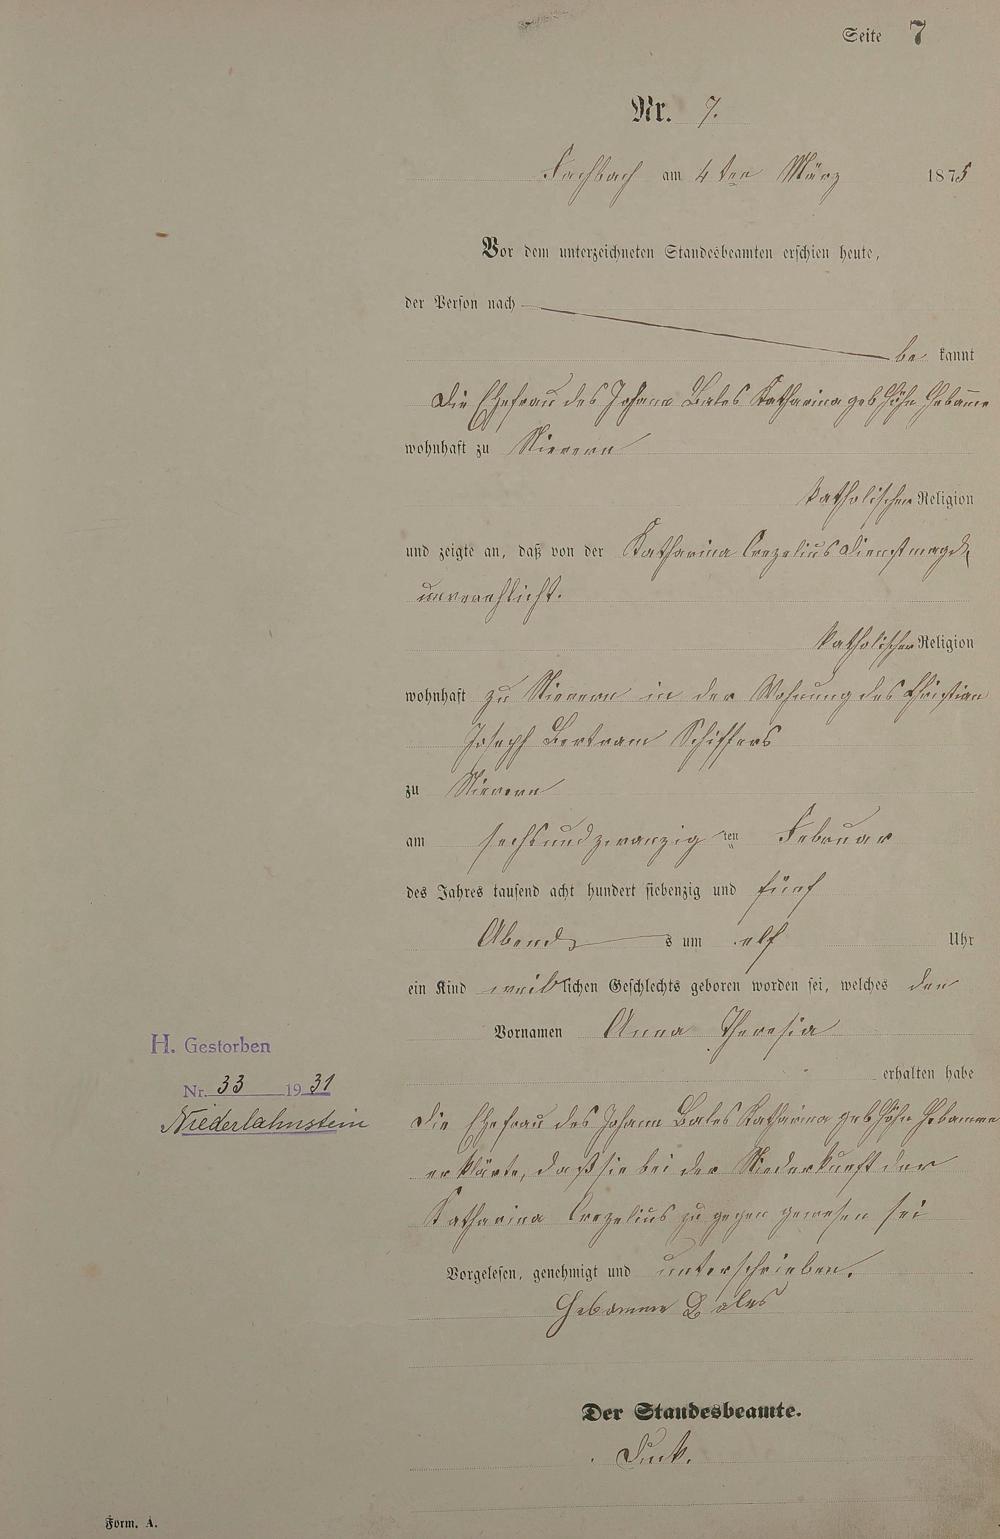 Seite 7
Nr. 7.
Fachbach am 4ten März 1875
Vor dem unterzeichneten Standesbeamten erschien heute,
der Person nach
be kannt
die Ehefrau des Johann Bales Katharina geb Höhn Hebamme
wohnhaft zu Nievern
katholischer Religion
und zeigte an, daß von der Katharina Crezelius Dienstmagd,
unverehlicht.
katholischer Religion
wohnhaft zu Nievern in der Wohnung des Christian
Joseph Bertram Schiffers
zu Nievern
am sechsundzwanzig ten Februar
des Jahres tausend acht hundert siebenzig und fünf
Abend s um elf Uhr
ein Kind weiblichen Geschlechts geboren worden sei, welches den
Vornamen Anna Theresia
erhalten habe
H. Gestorben
Nr. 33 1931
Niederlahnstein
die Ehefrau des Johann Bales Katharina geb Höhn Hebamme
erklärte, daß sie bei der Niederkunft der
Katharina Crezelius zu gegen gewesen sei
Vorgelesen, genehmigt und unterschrieben.
Hebamme Bales
Der Standesbeamte.
Form. A.